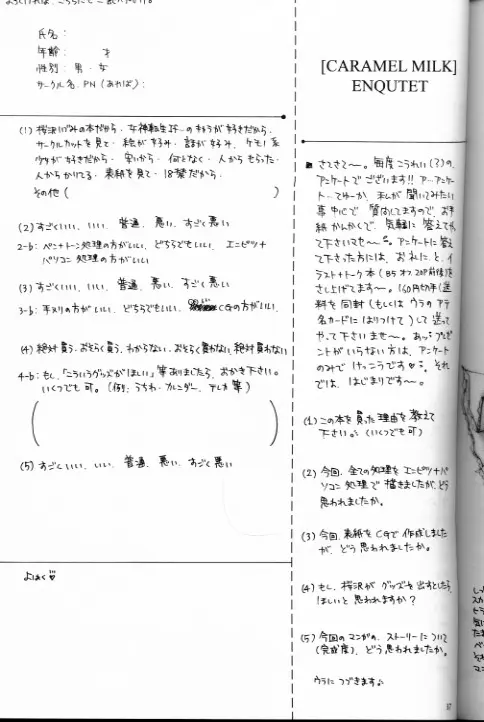 氏名:
年齢: 才
性別: 男・女
サークル名、PN(あれば):
(1) 桜沢いづみの本だから・女神転生if…のキョウが好きだから・
サークルカットを見て・絵が好み・話が好み、ケモノ系
少々が好きだから・安いから・何となく・人からもらった・
人からかりてる・表紙を見て・18禁だから・
その他( )
(2) すごくいい、いい、普通、悪い、すごく悪い
2-b: ペン+トーン処理の方がいい、どちらでもいい、エンピツ+
パソコン処理の方がいい
(3) すごくいい、いい、普通、悪い、すごく悪い
3-b: 手ヌリの方がいい、どちらでもいい、CGの方がいい、
(4) 絶対買う、おそらく買う、わからない、おそらく買わない、絶対買わない
4-b: もし、「こういうグッズがほしい」等ありましたら、おかき下さい。
いくつでも可。(例:うちわ・カレンダー、テレカ 等)
(5) すごくいい、いい、普通、悪い、すごく悪い
よはく♡
[CARAMEL MILK]
ENQUTET
■ さてさて〜。毎度こうれい(?)の
アンケートでございます!! ア…アンケー
ト…てゆーか、私が聞いてみたい
事中心で質問してますので、お手
紙かんかくで、気軽に答えてやっ
て下さいませ〜。アンケートに答え
て下さった方には、お礼にと、イ
ラスト+トーク本(B5オフ、20P前後)を
さし上げてます〜。160円切手(送
料を同封(もしくはウラのアテ
名カードにはりつけて)して送っ
てやって下さいませ〜。あっ、プレゼ
ントがいらない方は、アンケート
のみでけっこうです♡ それ
では、はじまりです〜。
(1) この本を買った理由を教えて
下さい。(いくつでも可)
(2) 今回、全ての処理をエンピツ+パ
ソコン処理で描きましたが、どう
思われましたか。
(3) 今回、表紙をCGで作成しました
が、どう思われましたか。
(4) もし、桜沢がグッズを出すとしたら、
ほしいと思われますか?
(5) 今回のマンガの、ストーリーについて
(完成度)、どう思われましたか。
ウラにつづきます♪
37